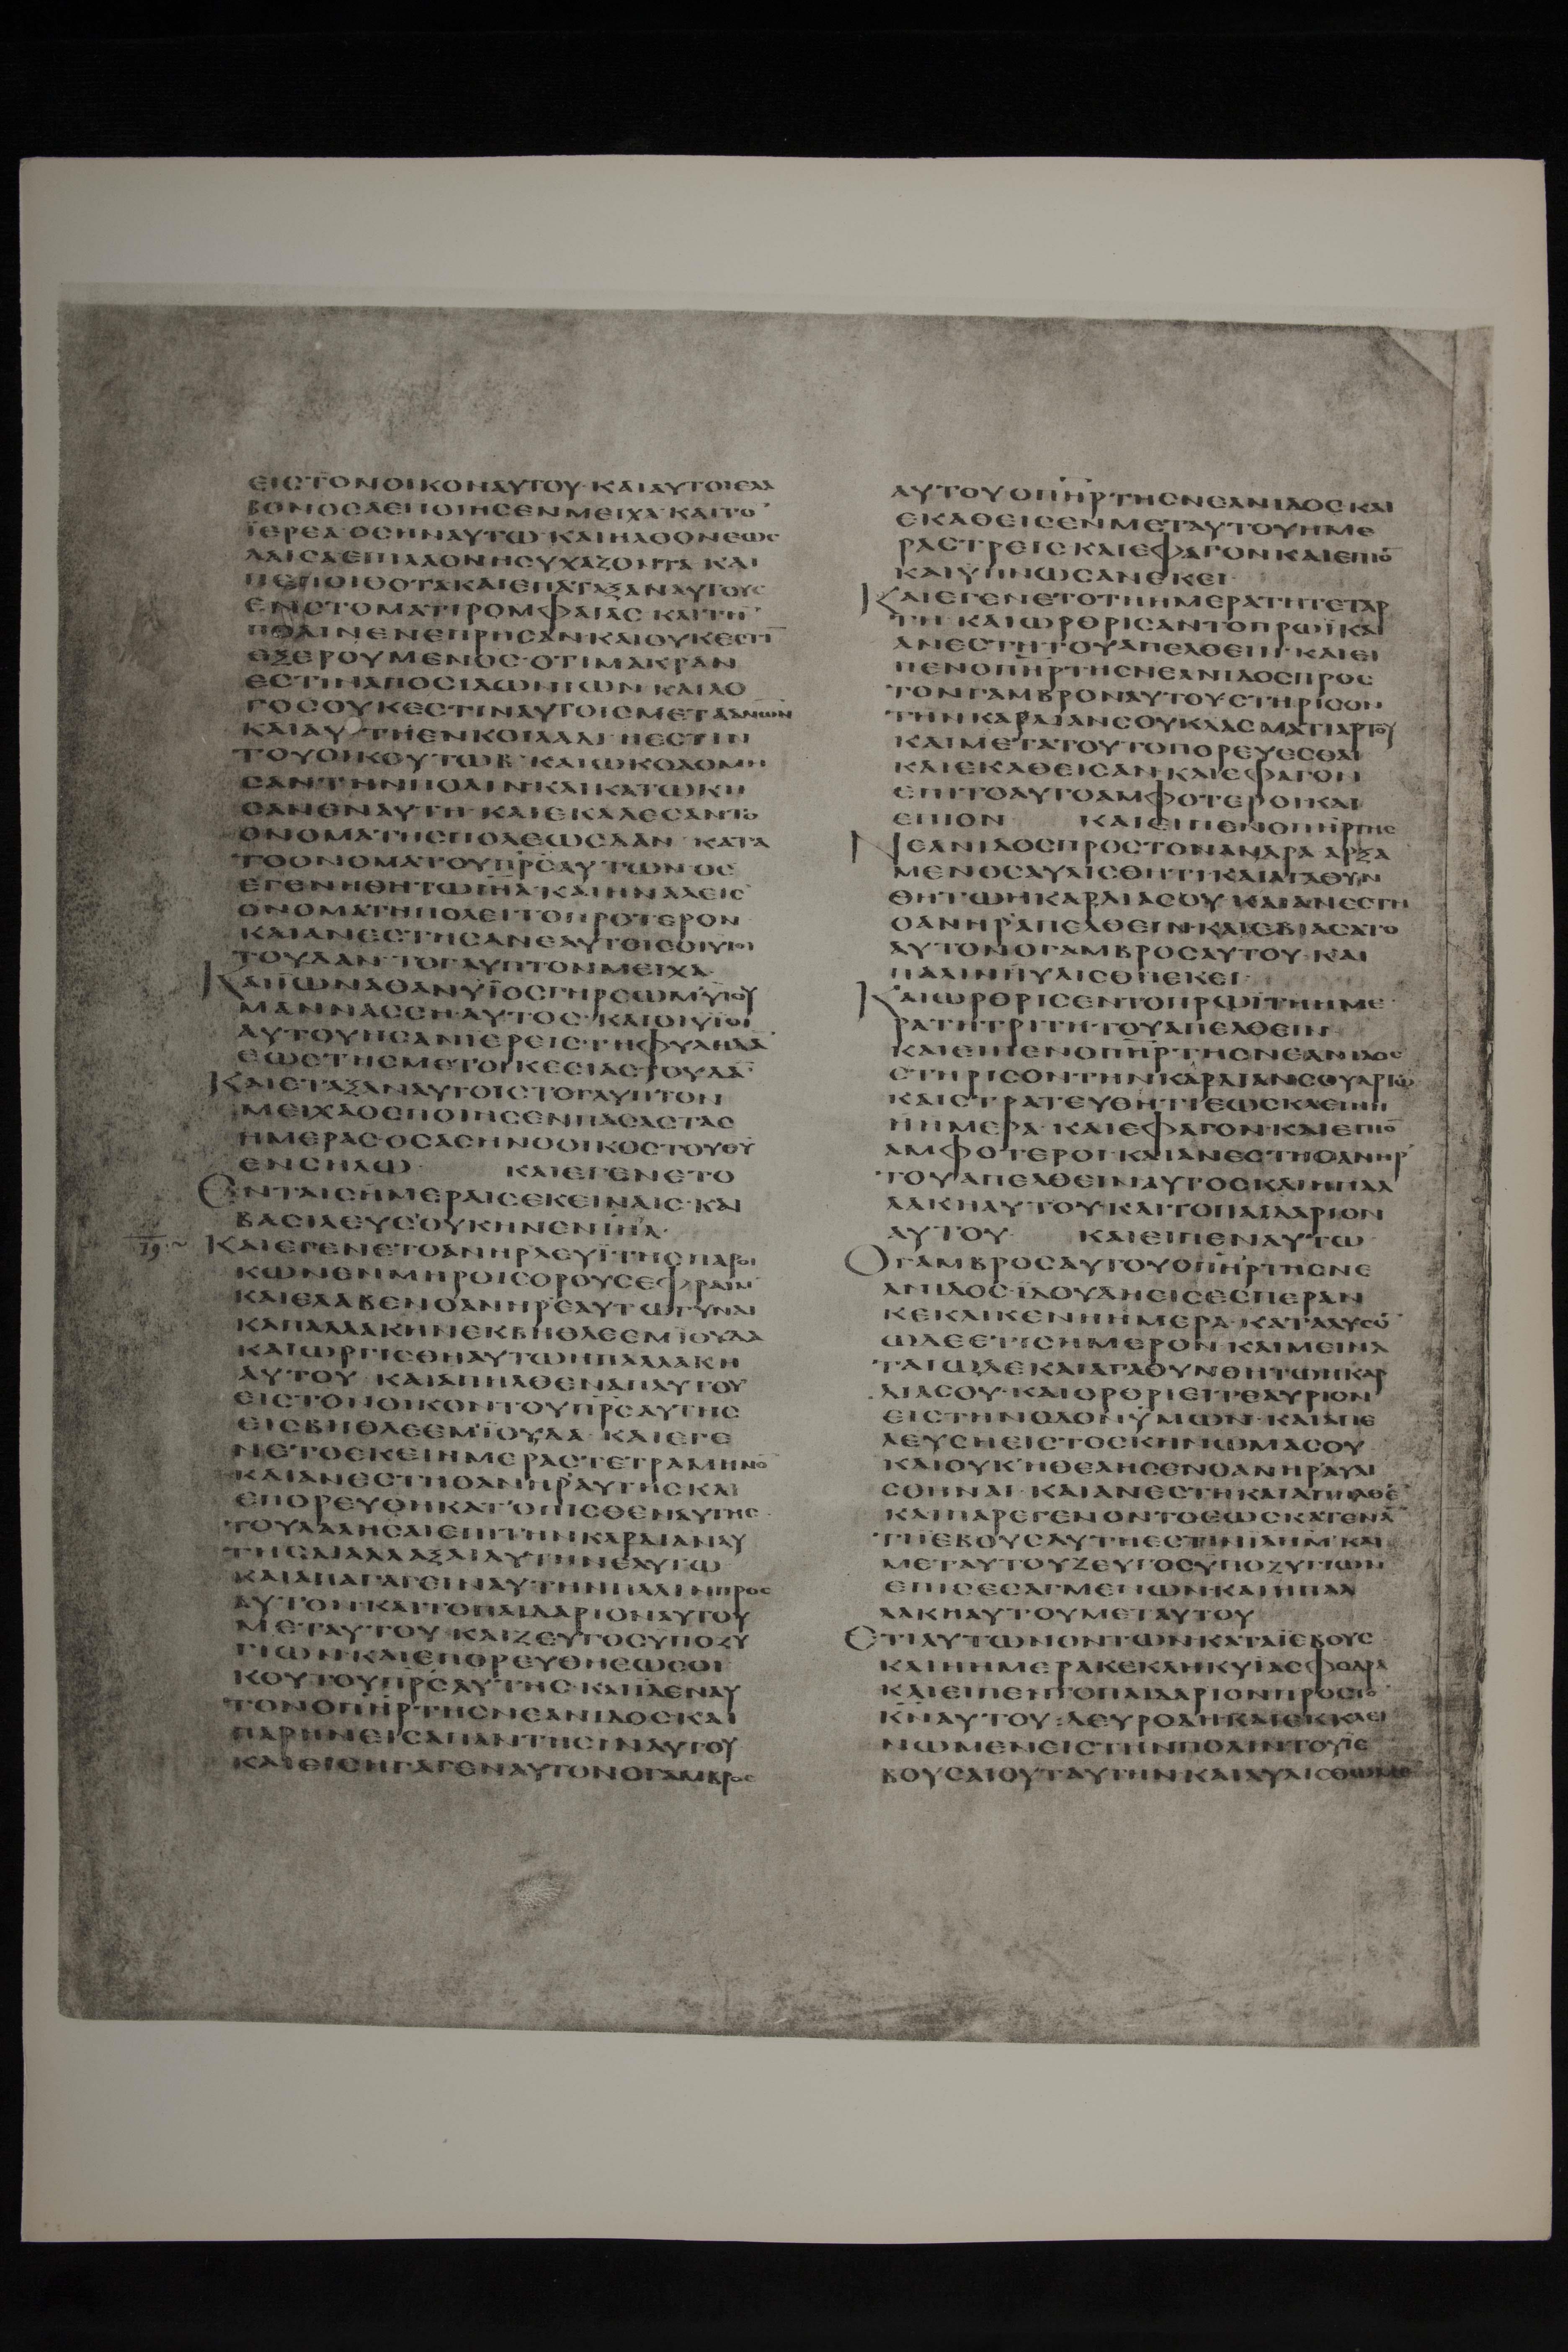 ΕΙΣΤΟΝΟΙΚΟΝΑΥΤΟΥ·ΚΑΙΑΥΤΟΙΕΛΑ
ΒΟΝΟΣΑΕΠΟΙΗΣΕΝΜΕΙΧΑ·ΚΑΙΤΟ
ΪΕΡΕΑ·ΟΣΗΝΑΥΤΩ·ΚΑΙΗΛΘΟΝΕΩΣ
ΛΑΙΣΑΕΠΙΛΑΟΝΗΣΥΧΑΖΟΝΤΑ ΚΑΙ
ΠΕΠΟΙΘΟΤΑΚΑΙΕΠΑΤΑΞΑΝΑΥΤΟΥΣ
ΕΝΣΤΟΜΑΤΙΡΟΜΦΑΙΑΣ ΚΑΙΤΗ
ΠΟΛΙΝΕΝΕΠΡΗΣΑΝ·ΚΑΙΟΥΚΕΣΤΙ
ΕΞΕΡΟΥΜΕΝΟΣ·ΟΤΙΜΑΚΡΑΝ
ΕΣΤΙΝΑΠΟΣΙΔΩΝΙΩΝ ΚΑΙΛΟ
ΓΟΣΟΥΚΕΣΤΙΝΑΥΤΟΙΣΜΕΤΑΑΝΩΝ
ΚΑΙΑΥΤΗΕΝΚΟΙΛΑΔΙ ΗΕΣΤΙΝ
ΤΟΥΟΙΚΟΥΤΩΒ ΚΑΙΩΚΟΔΟΜΗ
ΣΑΝΤΗΝΠΟΛΙΝΚΑΙΚΑΤΩΚΗ
ΣΑΝΕΝΑΥΤΗ·ΚΑΙΕΚΑΛΕΣΑΝΤΟ
ΟΝΟΜΑΤΗΣΠΟΛΕΩΣΔΑΝ ΚΑΤΑ
ΤΟΟΝΟΜΑΤΟΥΠΡΣΑΥΤΩΝ·ΟΣ
ΕΓΕΝΗΘΗΤΩΙΗΛ·ΚΑΙΗΝΛΑΕΙΣ
ΟΝΟΜΑΤΗΠΟΛΕΙΤΟΠΡΟΤΕΡΟΝ
ΚΑΙΑΝΕΣΤΗΣΑΝΕΑΥΤΟΙΣΟΙΥΙΟΙ
ΤΟΥΔΑΝ·ΤΟΓΛΥΠΤΟΝΜΕΙΧΑ·
ΚΑΙΪΩΝΑΘΑΝΫΪΟΣΓΗΡΣΩΜΫΙΟΥ
ΜΑΝΝΑΣΣΗ·ΑΥΤΟΣ·ΚΑΙΟΙΥΙΟΙ
ΑΥΤΟΥΗΣΑΝΪΕΡΕΙΣ·ΤΗΦΥΛΗΔΑ
ΕΩΣΤΗΣΜΕΤΟΙΚΕΣΙΑΣΤΟΥΔΑ
ΚΑΙΕΤΑΞΑΝΑΥΤΟΙΣΤΟΓΛΥΠΤΟΝ
ΜΕΙΧΑΟΕΠΟΙΗΣΕΝΠΑΣΑΣΤΑΣ
ΗΜΕΡΑΣ·ΟΣΑΣΗΝΟΟΙΚΟΣΤΟΥΘΥ
ΕΝΣΗΛΩ· ΚΑΙΕΓΕΝΕΤΟ
ΕΝΤΑΙΣΗΜΕΡΑΙΣΕΚΕΙΝΑΙΣ·ΚΑΙ
ΒΑΣΙΛΕΥΣΟΥΚΗΝΕΝΙΗΛ·
ΚΑΙΕΓΕΝΕΤΟΑΝΗΡΛΕΥΪΤΗΣΠΑΡΟΙ
ΚΩΝΕΝΜΗΡΟΙΣΟΡΟΥΣΕΦΡΑΪΜ
ΚΑΙΕΛΑΒΕΝΟΑΝΗΡΕΑΥΤΩΓΥΝΑΙ
ΚΑΠΑΛΛΑΚΗΝΕΚΒΗΘΛΕΕΜΪΟΥΔΑ
ΚΑΙΩΡΓΙΣΘΗΑΥΤΩΗΠΑΛΛΑΚΗ
ΑΥΤΟΥ·ΚΑΙΑΠΗΛΘΕΝΑΠΑΥΤΟΥ
ΕΙΣΤΟΝΟΙΚΟΝΤΟΥΠΡΣΑΥΤΗΣ
ΕΙΣΒΗΘΛΕΕΜΪΟΥΔΑ·ΚΑΙΕΓΕ
ΝΕΤΟΕΚΕΙΗΜΕΡΑΣΤΕΤΡΑΜΗΝΟ
ΚΑΙΑΝΕΣΤΗΟΑΝΗΡΑΥΤΗΣΚΑΙ
ΕΠΟΡΕΥΘΗΚΑΤΟΠΙΣΘΕΝΑΥΤΗΣ
ΤΟΥΛΑΛΗΣΑΙΕΠΙΤΗΝΚΑΡΔΙΑΝΑΥ
ΤΗΣΔΙΑΛΛΑΞΑΙΑΥΤΗΝΕΑΥΤΩ
ΚΑΙΑΠΑΓΑΓΕΙΝΑΥΤΗΝΠΑΛΙΝΠΡΟΣ
ΑΥΤΟΝ·ΚΑΙΤΟΠΑΙΔΑΡΙΟΝΑΥΤΟΥ
ΜΕΤΑΥΤΟΥ·ΚΑΙΖΕΥΓΟΣΥΠΟΖΥ
ΓΙΩΝ·ΚΑΙΕΠΟΡΕΥΘΗΕΩΣΟΙ
ΚΟΥΤΟΥΠΡΣΑΥΤΗΣ·ΚΑΙΪΔΕΝΑΥ
ΤΟΝΟΠΗΡΤΗΣΝΕΑΝΙΔΟΣΚΑΙ
ΠΑΡΗΝΕΙΣΑΠΑΝΤΗΣΙΝΑΥΤΟΥ
ΚΑΙΕΙΣΗΓΑΓΕΝΑΥΤΟΝΟΓΑΜΒΡΟΣ
ΑΥΤΟΥΟΠΗΡΤΗΣΝΕΑΝΙΔΟΣΚΑΙ
ΕΚΑΘΕΙΣΕΝΜΕΤΑΥΤΟΥΗΜΕ
ΡΑΣΤΡΕΙΣΚΑΙΕΦΑΓΟΝΚΑΙΕΠΙΟ
ΚΑΙΫΠΝΩΣΑΝΕΚΕΙ·
ΚΑΙΕΓΕΝΕΤΟΤΗΗΜΕΡΑΤΗΤΕΤΑΡ
ΤΗ·ΚΑΙΩΡΘΡΙΣΑΝΤΟΠΡΩΪΚΑΙ
ΑΝΕΣΤΗΤΟΥΑΠΕΛΘΕΙΝ·ΚΑΙΕΙ
ΠΕΝΟΠΗΡΤΗΣΝΕΑΝΙΔΟΣΠΡΟΣ
ΤΟΝΓΑΜΒΡΟΝΑΥΤΟΥΣΤΗΡΙΣΟΝ
ΤΗΝΚΑΡΔΙΑΝΣΟΥΚΛΑΣΜΑΤΙΑΡΤΟΥ
ΚΑΙΜΕΤΑΤΟΥΤΟΠΟΡΕΥΕΣΘΑΙ
ΚΑΙΕΚΑΘΕΙΣΑΝ·ΚΑΙΕΦΑΓΟΝ
ΕΠΙΤΟΑΥΤΟΑΜΦΟΤΕΡΟΙΚΑΙ
ΕΠΙΟΝ ΚΑΙΕΙΠΕΝΟΠΗΡΤΗΣ
ΝΕΑΝΙΔΟΣΠΡΟΣΤΟΝΑΝΔΡΑ ΑΡΞΑ
ΜΕΝΟΣΑΥΛΙΣΘΗΤΙΚΑΙΑΓΑΘΥΝ
ΘΗΤΩΗΚΑΡΔΙΑΣΟΥ·ΚΑΙΑΝΕΣΤΗ
ΟΑΝΗΡΑΠΕΛΘΕΙΝ·ΚΑΙΕΒΙΑΣΑΤΟ
ΑΥΤΟΝΟΓΑΜΒΡΟΣΑΥΤΟΥ·ΚΑΙ
ΠΑΛΙΝΗΥΛΙΣΘΗΕΚΕΙ·
ΚΑΙΩΡΘΡΙΣΕΝΤΟΠΡΩΪΤΗΗΜΕ
ΡΑΤΗΤΡΙΤΗ·ΤΟΥΑΠΕΛΘΕΙΝ
ΚΑΙΕΙΠΕΝΟΠΗΡΤΗΣΝΕΑΝΙΔΟΣ
ΣΤΗΡΙΣΟΝΤΗΝΚΑΡΔΙΑΝΣΟΥΑΡΤΩ
ΚΑΙΣΤΡΑΤΕΥΘΗΤΙΕΩΣΚΛΕΙΝΗ
ΗΗΜΕΡΑ·ΚΑΙΕΦΑΓΟΝ·ΚΑΙΕΠΙΟ
ΑΜΦΟΤΕΡΟΙ·ΚΑΙΑΝΕΣΤΗΟΑΝΗΡ
ΤΟΥΑΠΕΛΘΕΙΝΑΥΤΟΣΚΑΙΗΠΑΛ
ΛΑΚΗΑΥΤΟΥΚΑΙΤΟΠΑΙΔΑΡΙΟΝ
ΑΥΤΟΥ ΚΑΙΕΙΠΕΝΑΥΤΩ
ΟΓΑΜΒΡΟΣΑΥΤΟΥΟΠΗΡΤΗΣΝΕ
ΑΝΙΔΟΣ·ΪΔΟΥΔΗΕΙΣΕΣΠΕΡΑΝ
ΚΕΚΛΙΚΕΝΗΗΜΕΡΑ·ΚΑΤΑΛΥΣΟ
ΩΔΕΕΤΙΣΗΜΕΡΟΝ·ΚΑΙΜΕΙΝΑ
ΤΑΙΩΔΕΚΑΙΑΓΑΘΥΝΘΗΤΩΗΚΑΡ
ΔΙΑΣΟΥ·ΚΑΙΟΡΘΡΙΕΙΤΕΑΥΡΙΟΝ
ΕΙΣΤΗΝΟΔΟΝΫΜΩΝ·ΚΑΙΑΠΕ
ΛΕΥΣΗΕΙΣΤΟΣΚΗΝΩΜΑΣΟΥ
ΚΑΙΟΥΚΗΘΕΛΗΣΕΝΟΑΝΗΡΑΥΛΙ
ΣΘΗΝΑΙ·ΚΑΙΑΝΕΣΤΗΚΑΙΑΠΗΛΘΕ
ΚΑΙΠΑΡΕΓΕΝΟΝΤΟΕΩΣΚΑΤΕΝΑ
ΤΙΪΕΒΟΥΣΑΥΤΗΕΣΤΙΝΙΛΗΜ·ΚΑΙ
ΜΕΤΑΥΤΟΥΖΕΥΓΟΣΫΠΟΖΥΓΙΩΝ
ΕΠΙΣΕΣΑΓΜΕΝΩΝ·ΚΑΙΗΠΑΛ
ΛΑΚΗΑΥΤΟΥΜΕΤΑΥΤΟΥ
ΕΤΙΑΥΤΩΝΟΝΤΩΝΚΑΤΑΪΕΒΟΥΣ
ΚΑΙΗΗΜΕΡΑΚΕΚΛΗΚΥΪΑΣΦΟΔΡΑ
ΚΑΙΕΙΠΕΝΤΟΠΑΙΔΑΡΙΟΝΠΡΟΣΤΟ
ΚΝΑΥΤΟΥ·ΔΕΥΡΟΔΗΚΑΙΕΚΚΛΕΙ
ΝΩΜΕΝΕΙΣΤΗΝΠΟΛΙΝΤΟΥΪΕ
ΒΟΥΣΑΙΟΥΤΑΥΤΗΝ·ΚΑΙΑΥΛΙΣΘΩΜΕ